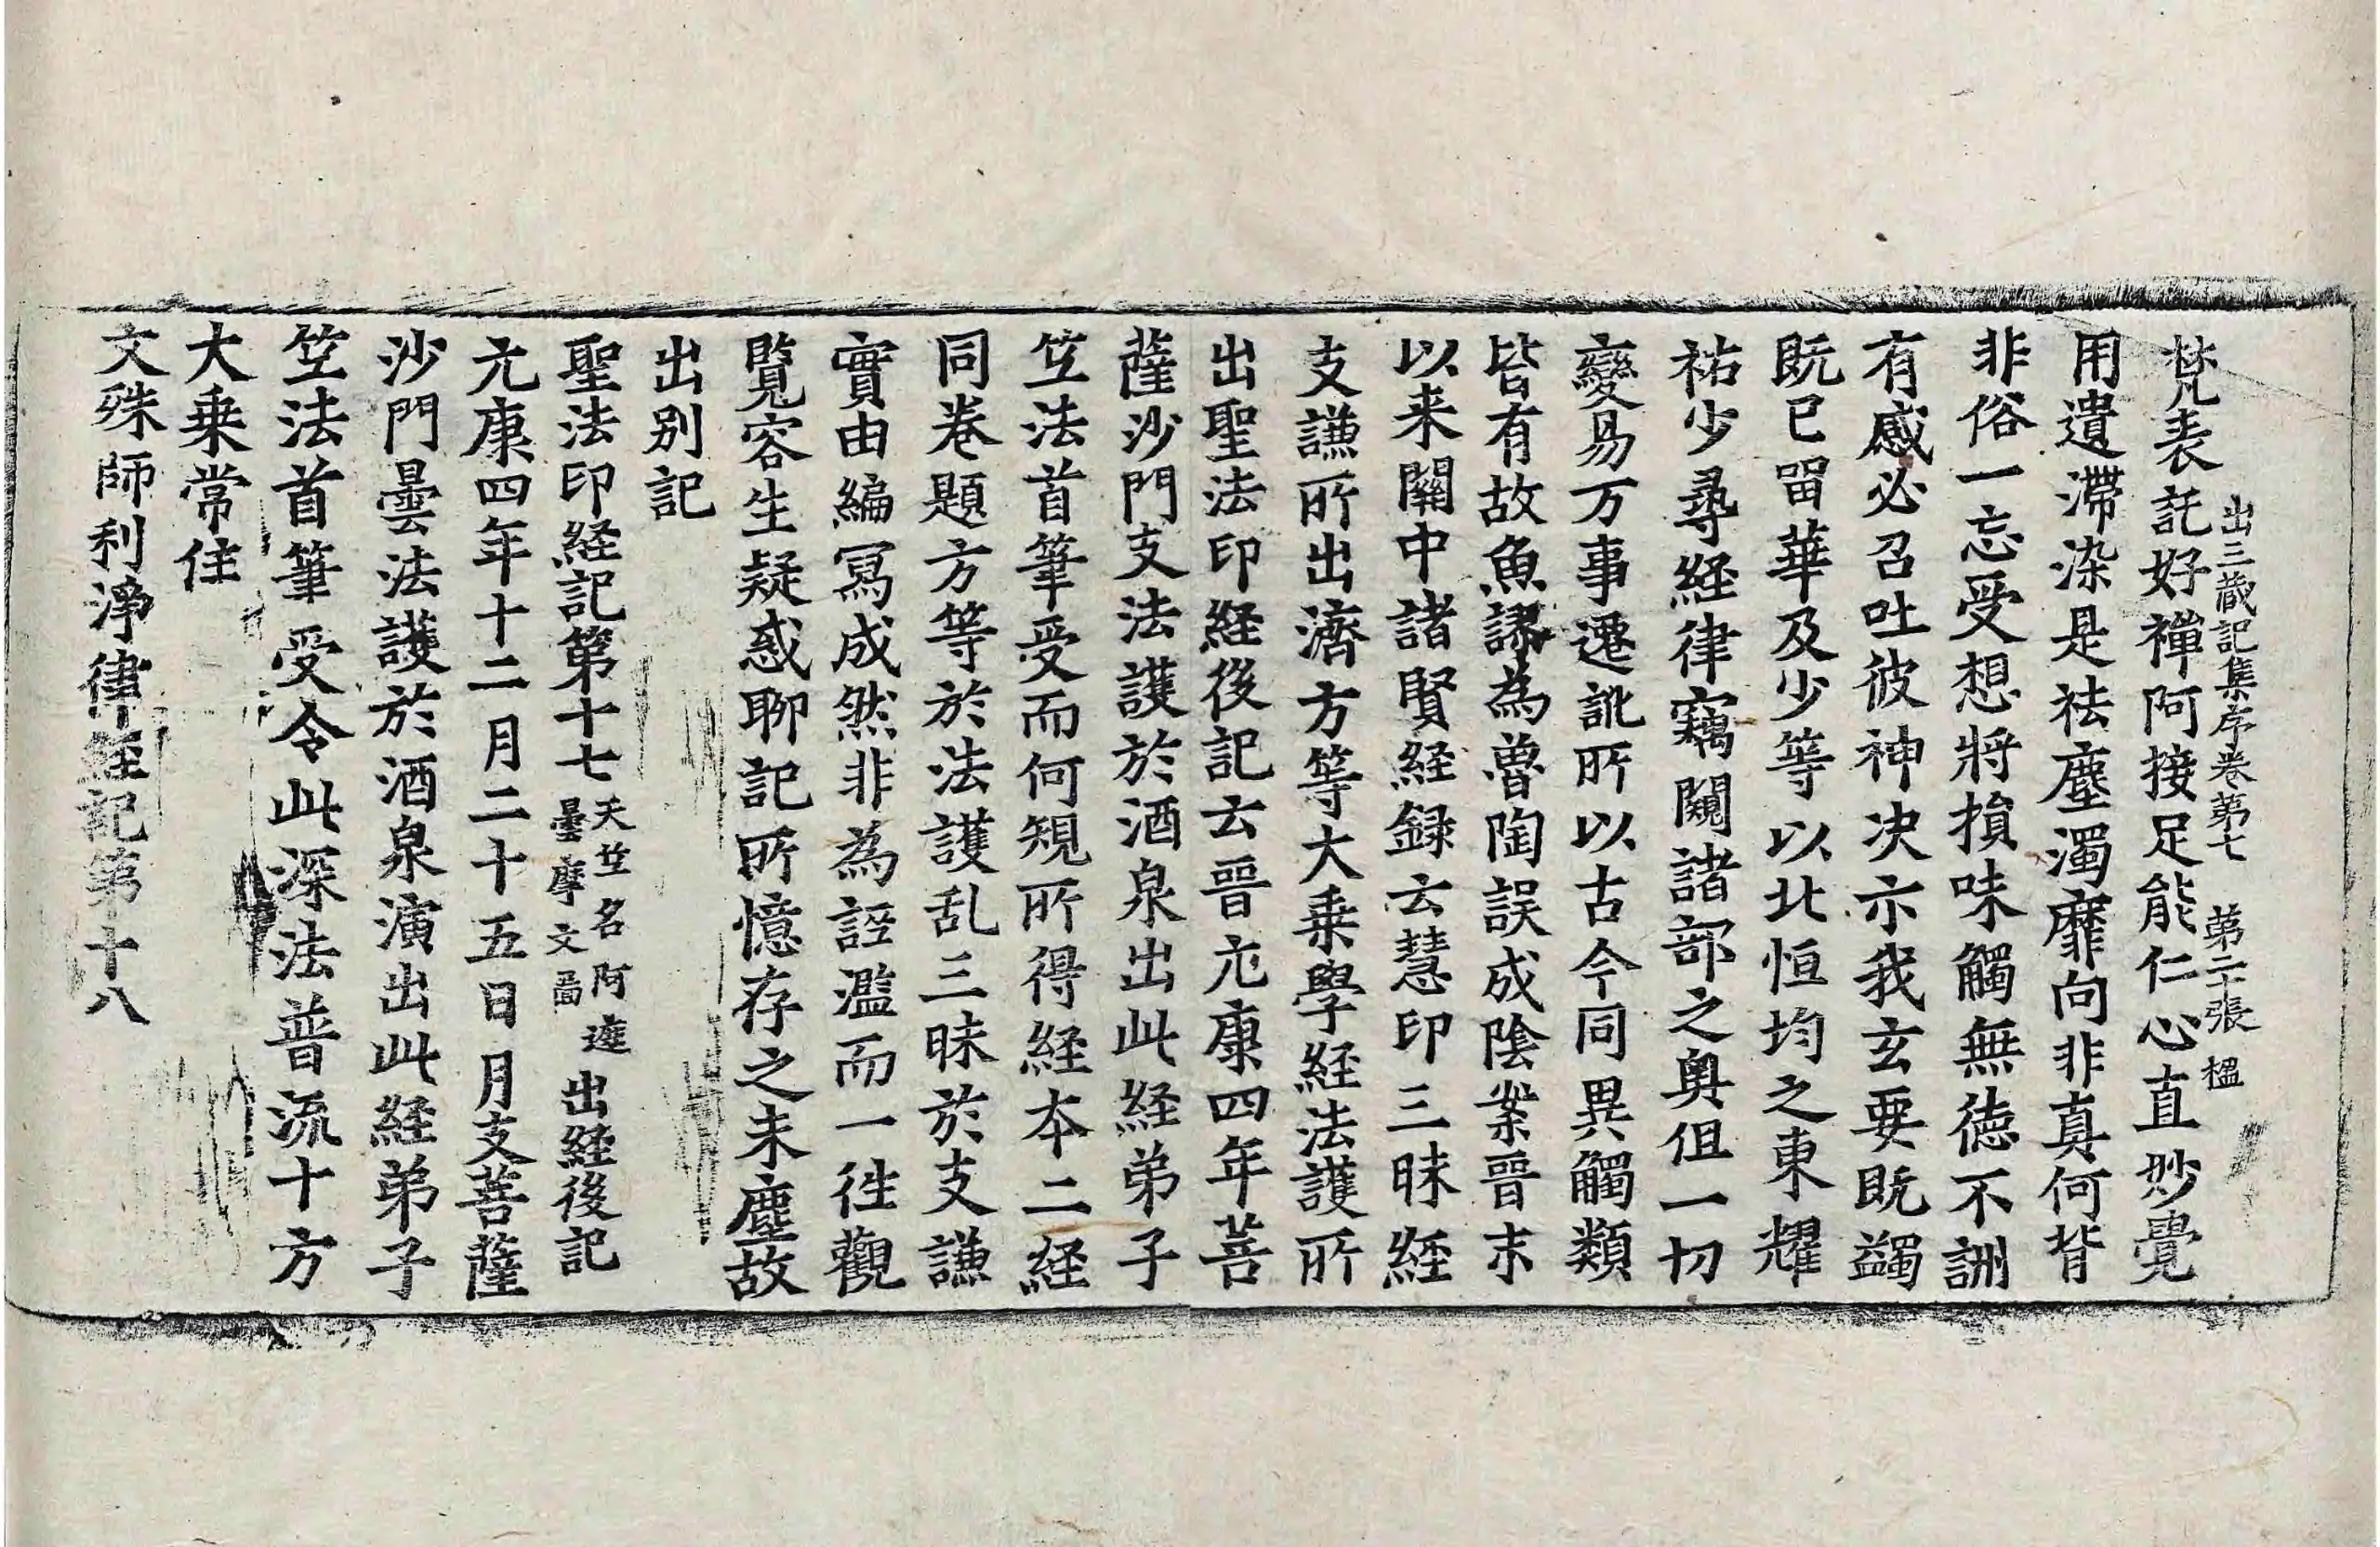 出三藏記集序卷第七 第二十張 榲
梵表託好禪阿接足能仁心直妙覺
用遺滯染是祛塵濁靡向非真何背
非俗一忘受想將損味觸無徳不詶
有感必召吐彼神决示我玄要既蠲
既已留華及少等以北恒均之東耀
祐少尋経律竊闚諸部之奥但一切
變易万事遷訛所以古今同異觸類
皆有故魚謬為魯陶誤成陰案晉末
以来關中諸賢経録云慧印三昧経
支謙所出濟方等大乗學経法護所
出聖法印経後記云晉元康四年菩
薩沙門支法護於酒泉出此経弟子
竺法首筆受而何規所得経本二経
同卷題方等於法護乱三昧於支謙
實由編寫成然非為誣濫而一往觀
覽容生疑惑聊記所憶存之末塵故
出別記
聖法印経記第十七 天竺名阿遮曇摩文圖 出経後記
元康四年十二月二十五日月支菩薩
沙門曇法護於酒泉演出此経弟子
竺法首筆受令此深法普流十方
大乗常住
文殊師利淨律経記第十八